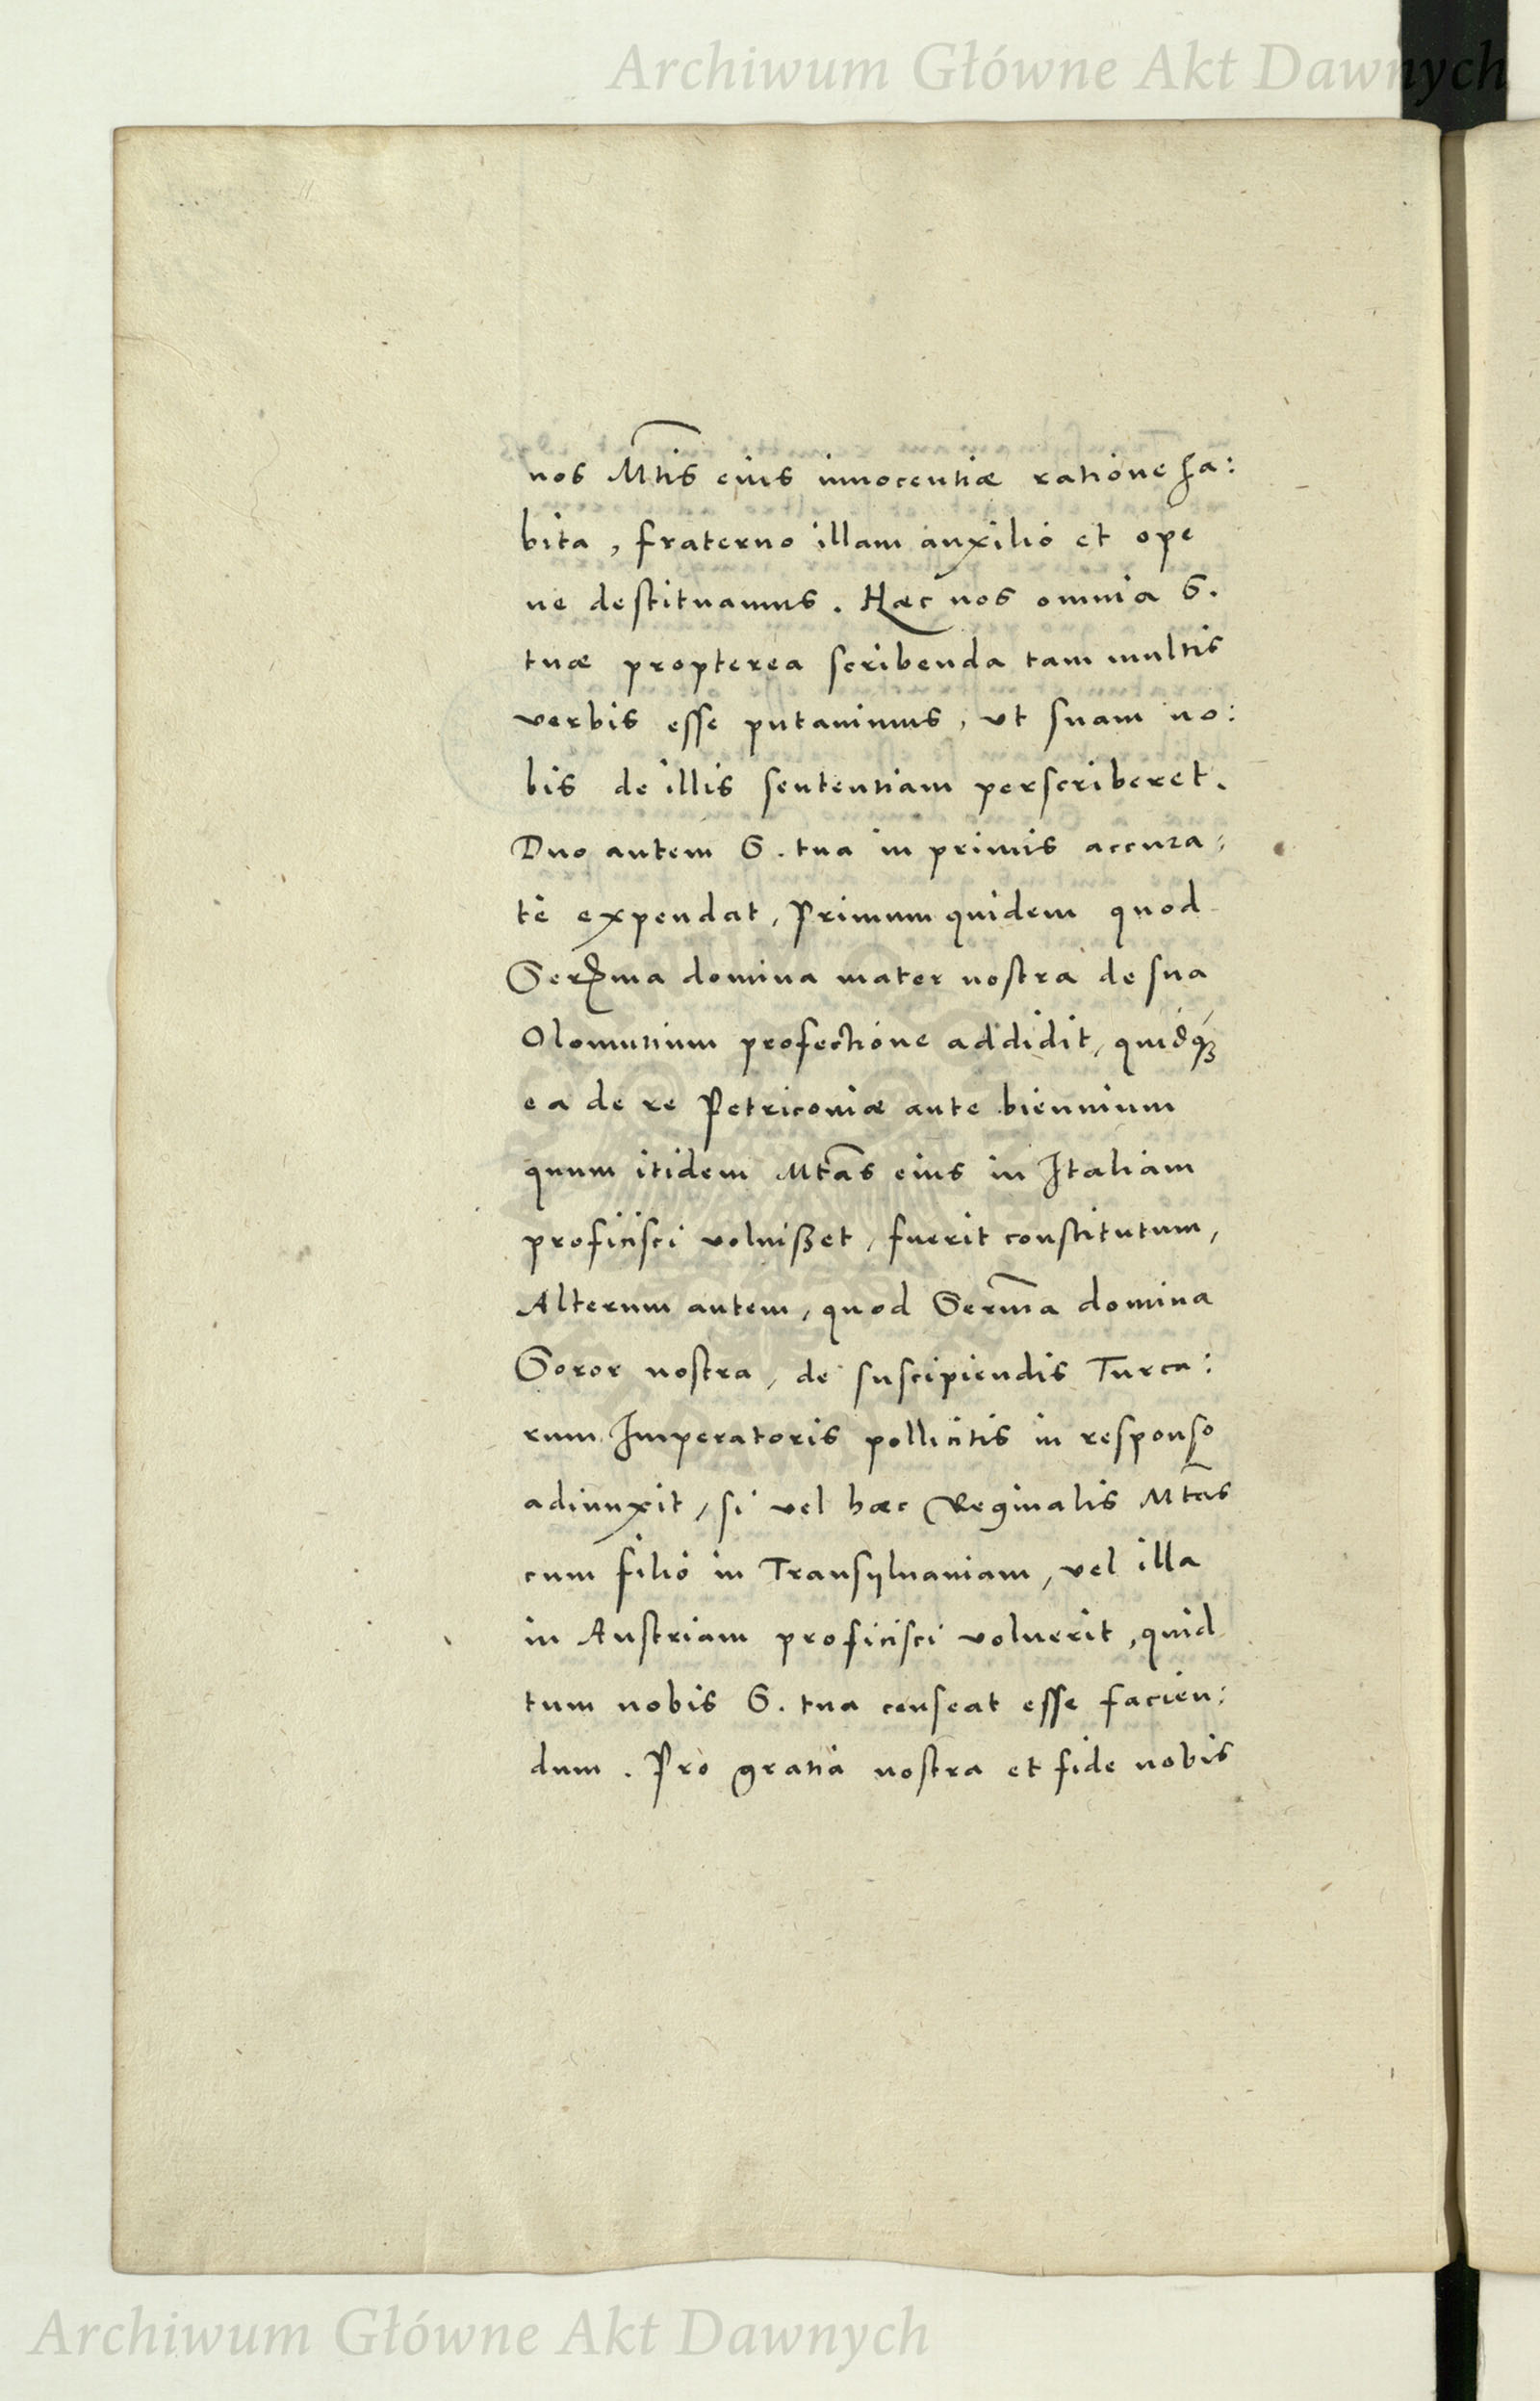 Archiwum Główne Akt Dawnych
nos Mtis eius innocentiæ ratione ha:
bita, fraterno illam auxilio et ope
ne destituamus. Hæc nos omnia G.
tuæ propterea scribenda tam multis
verbis esse putauimus, vt suam no:
bis de illis sententiam perscriberet.
Duo autem G. tua in primis accura:
tè expendat, Primum quidem quod
Serma domina mater nostra de sua
Olomutium profectione addidit, quidq3
ea de re Petricouiæ ante biennium
quum itidem Mtas eius in Italiam
proficisci voluißet, fuerit constitutum,
Alterum autem, quod Serma domina
Soror nostra, de suscipiendis Turca:
rum Imperatoris pollicitis in responso
adiunxit, si vel hæc Reginalis Mtas
cum filio in Transyluaniam, vel illa
in Austriam proficisci voluerit, quid
tum nobis G. tua censeat esse facien:
dum. Pro gratia nostra et fide nobis
Archiwum Główne Akt Dawnych